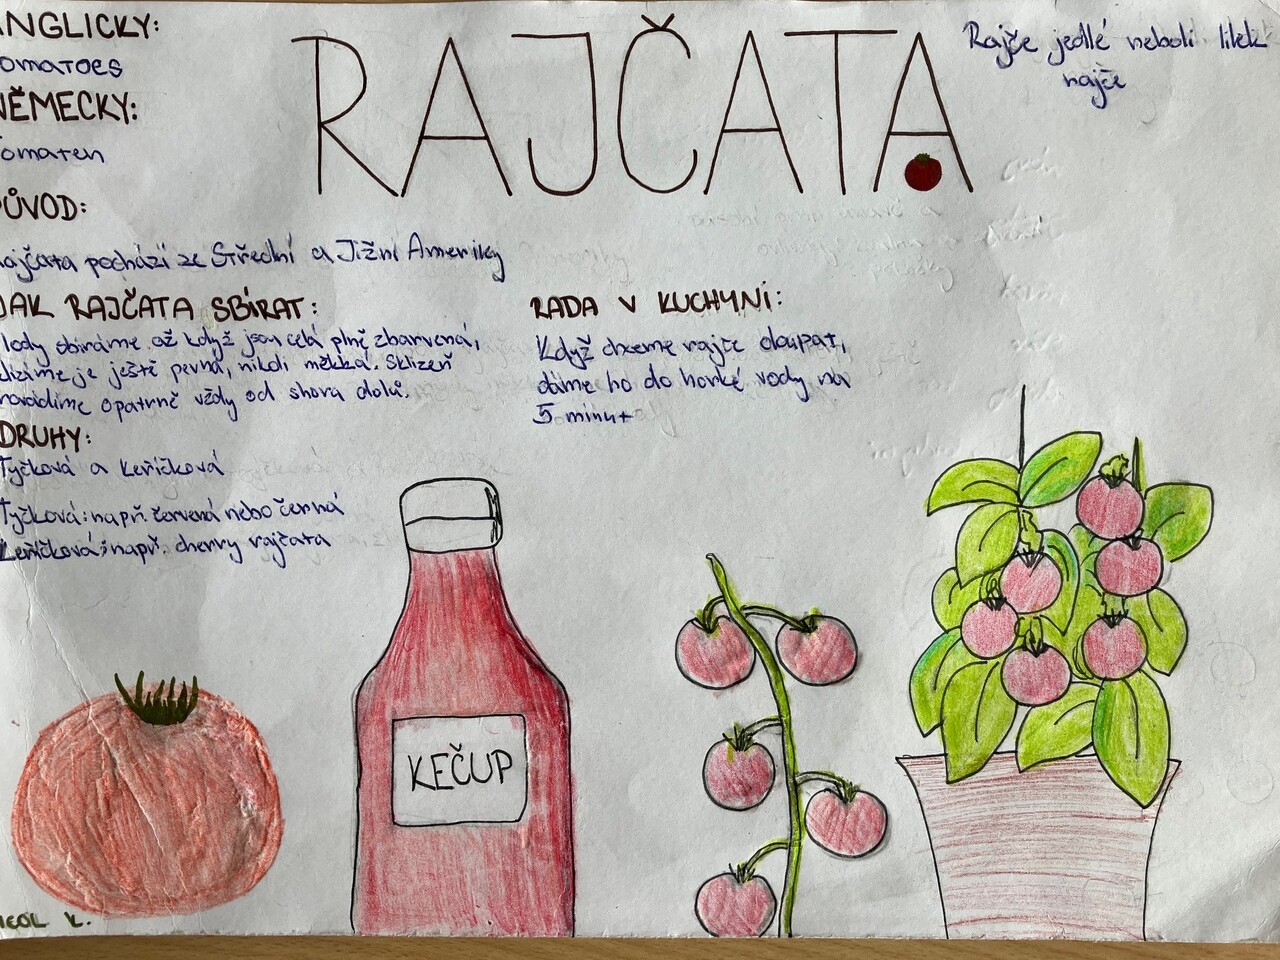 ANGLICKY:
omatoes
NĚMECKY:
omaten
RAJČATA
Rajče jedlé neboli lilek
rajče
PŮVOD:
ajčata pochází ze Střední a Jižní Ameriky
JAK RAJČATA SBÍRAT:
lody sbíráme až když jsou celá plně zbarvená,
lízíme je ještě pevná, nikoli měkká. Sklizeň
rovádíme opatrně vždy od shora dolů.
DRUHY:
Tyčková a keříčková
Tyčková: např. červená nebo černá
Keříčková: např. cherry rajčata
RADA V KUCHYNI:
Když chceme rajče oloupat,
dáme ho do horké vody na
5 minut
KEČUP
ICOL K.